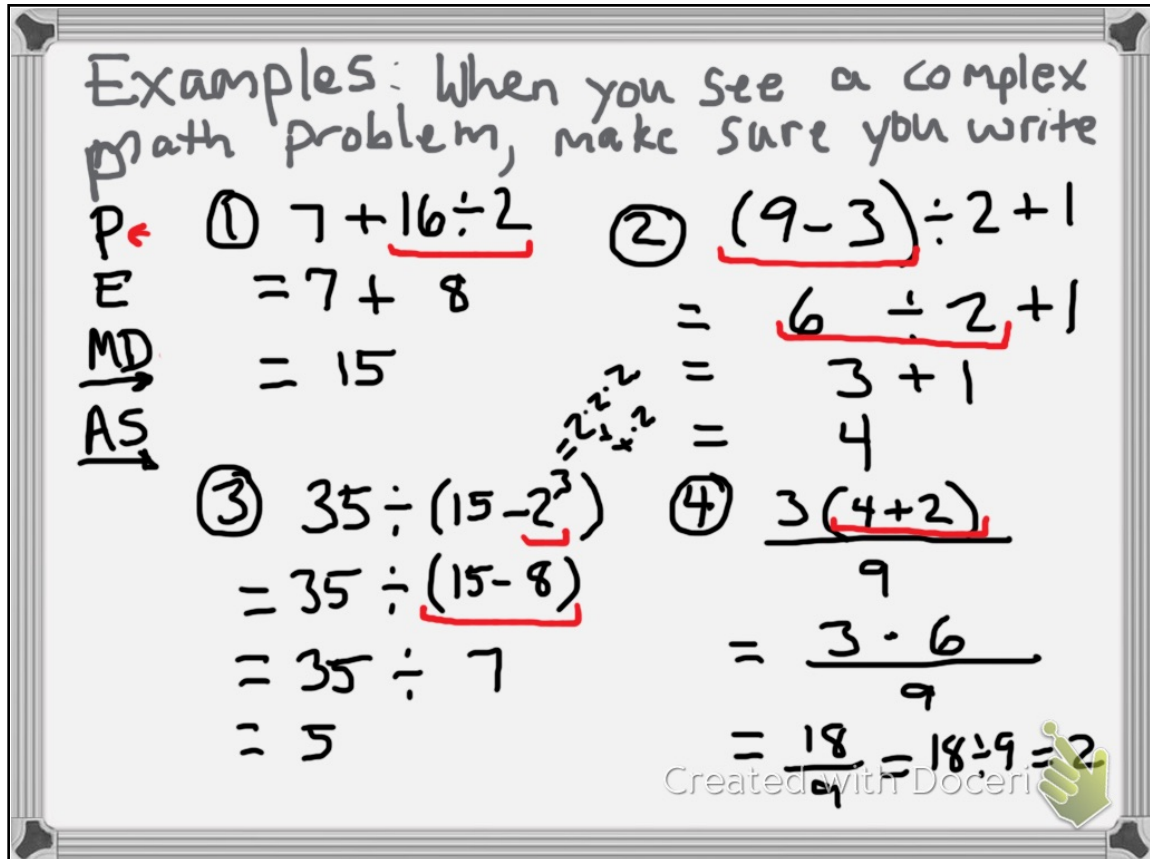 Examples: When you see a complex
math problem, make sure you write
P
E
MD
AS
① 7 + 16 ÷ 2
= 7 + 8
= 15
② (9 - 3) ÷ 2 + 1
= 6 ÷ 2 + 1
= 3 + 1
= 4
③ 35 ÷ (15 - 2³)
= 35 ÷ (15 - 8)
= 35 ÷ 7
= 5
④ 3(4+2)
9
= 3 · 6
9
= 18
9
= 18÷9 = 2
Created with Doceri